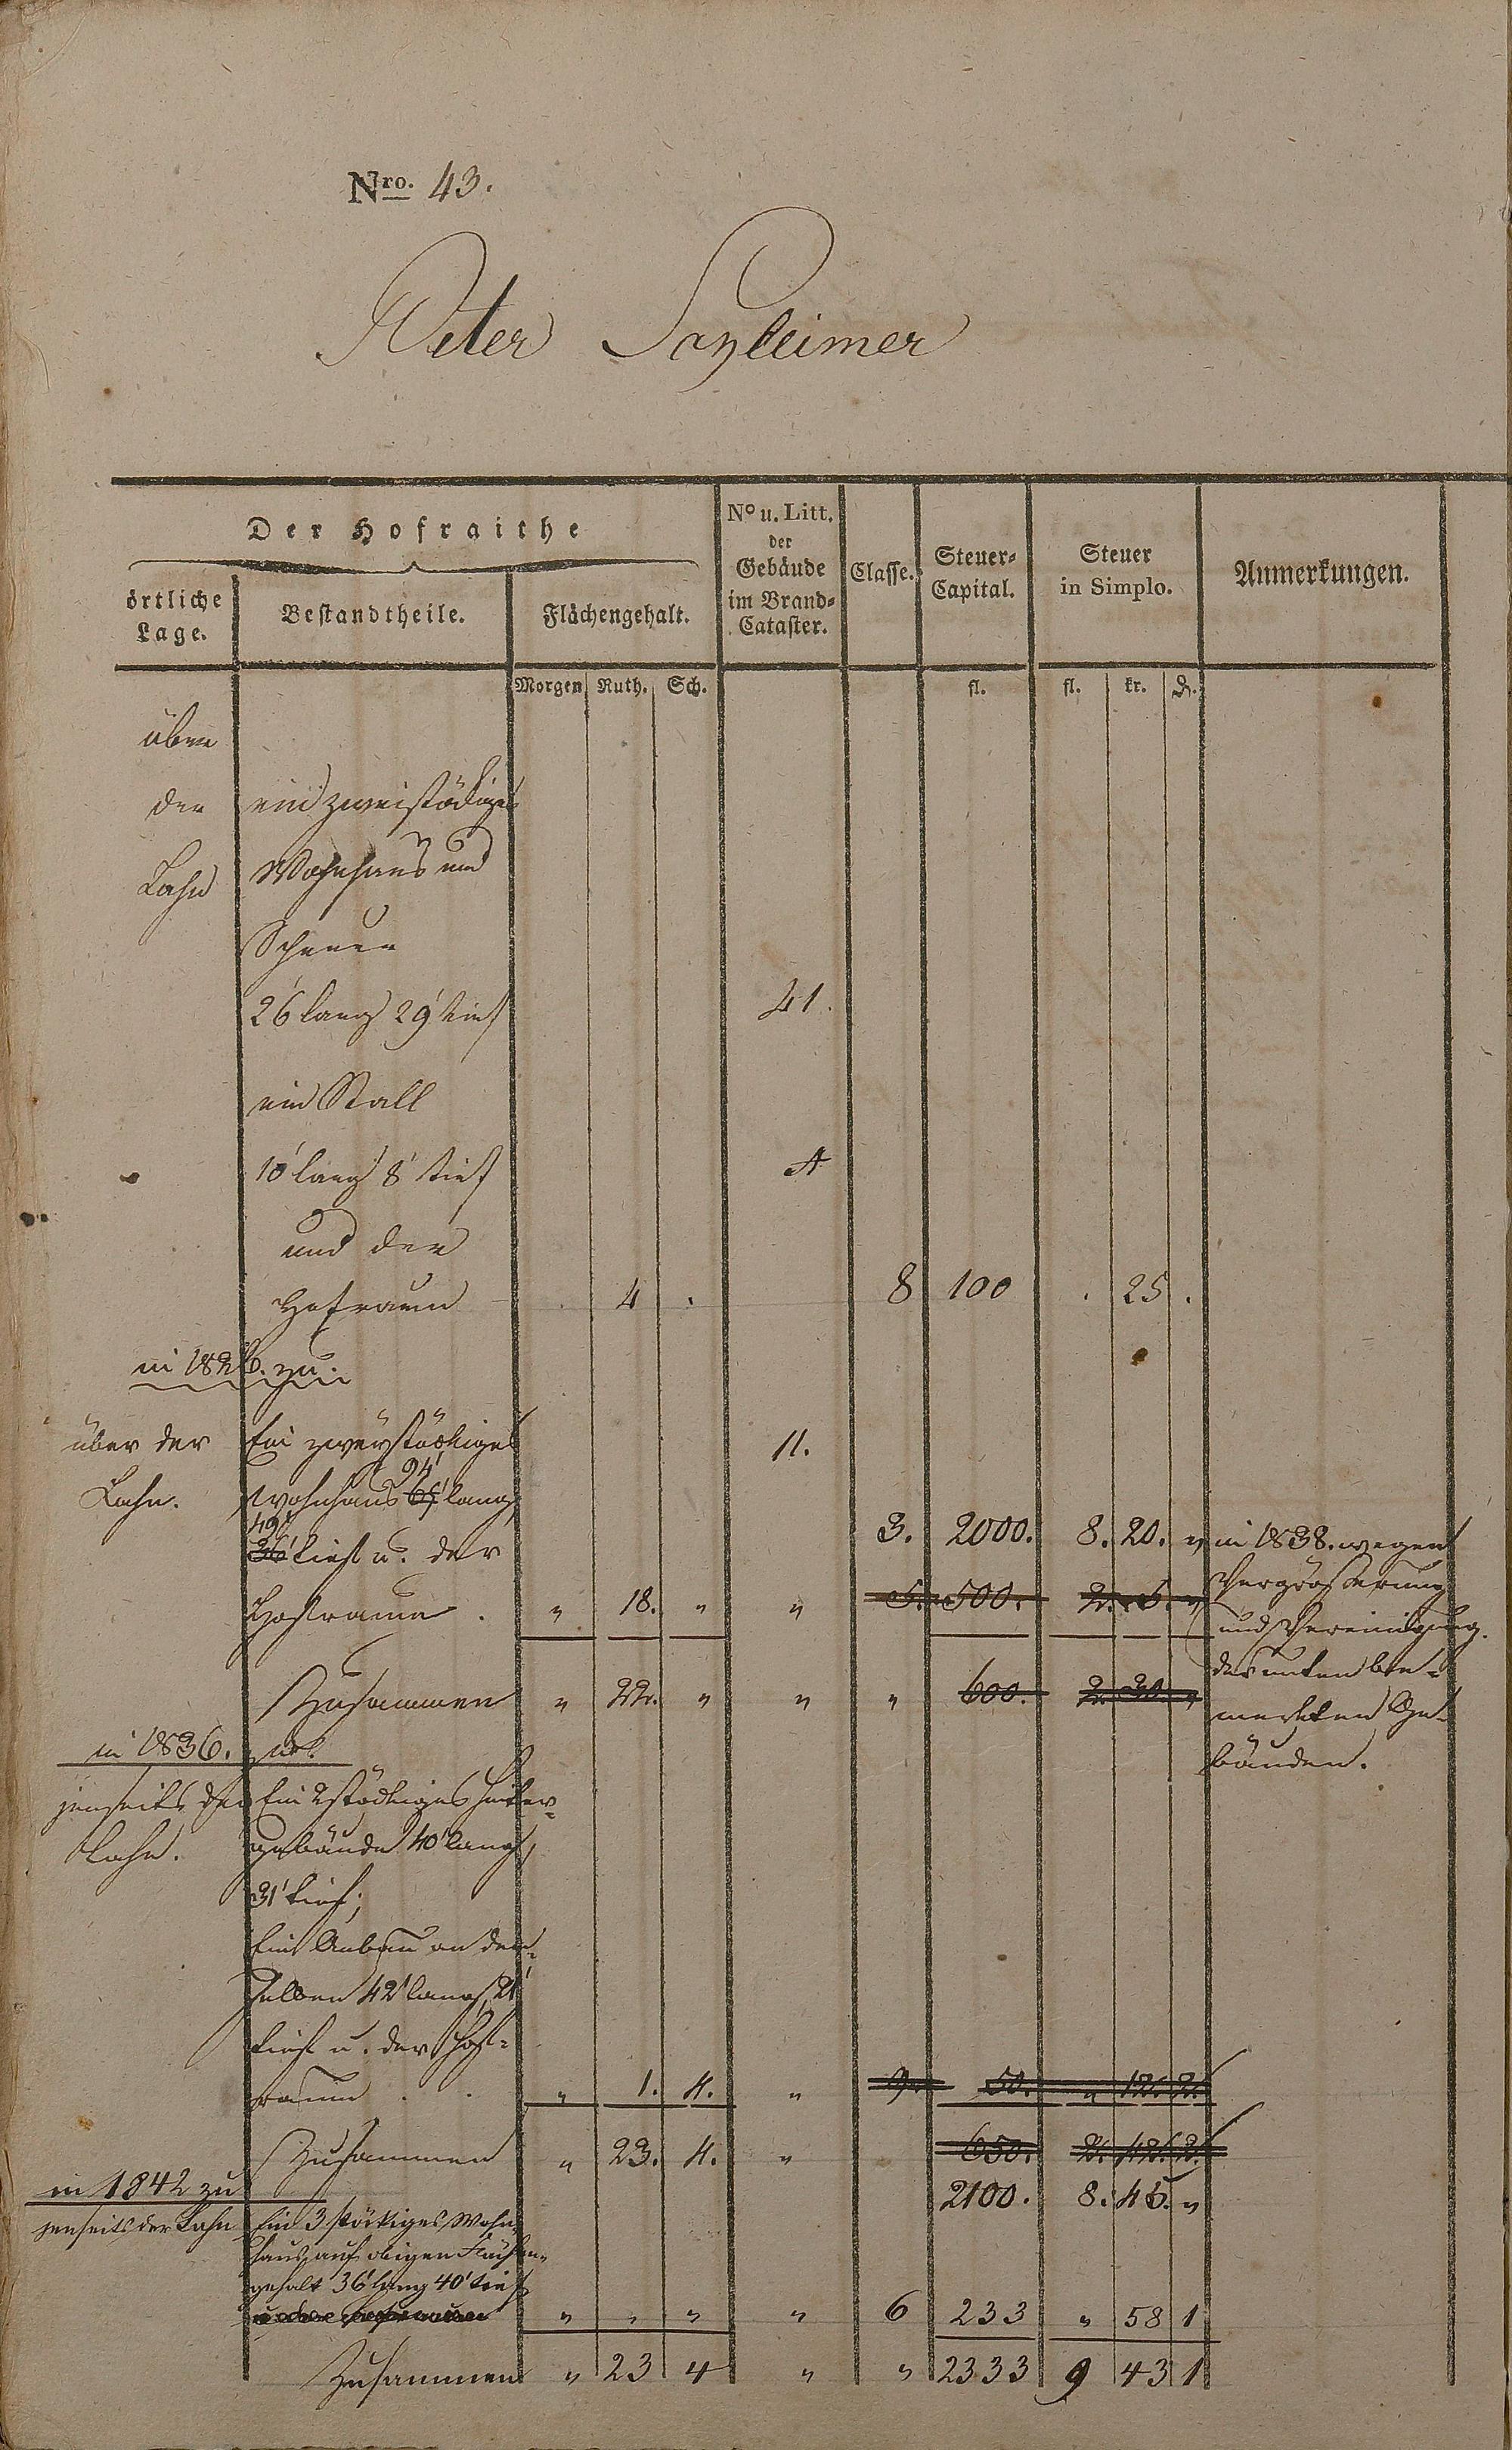 Nro. 43.
Peter
Der Hofraithe
örtliche Lage.
Bestandtheile.
Flächengehalt.
No u. Litt. der Gebäude im Brand-Cataster.
Classe.
Steuer-Capital.
Steuer in Simplo.
Anmerkungen.
Morgen Ruth. Sch. fl. fl. kr. d.
über
der ein zweistöckiges
Lahn Wohnhaus und
Scheuer
26' lang 29' tief 41.
ein Stall
10' lang 8' tief A
und der
Hofraum 4 . 8 100 . 25 .
in 1826. zu.
über der Ein zweystöckiges 11.
94'
Lahn. Wohnhaus 65' lang,
49'
36' tief u. der 3. 2000. 8. 20. " in 1838. wegen
Vergrößerung
Hofraum . " 18. " " 5. 500. 2. 5. "
und Vereinigung
der unten be-
Zusammen " 22. " " " 600. 2. 30. "
merkten Ge-
bäuden.
in 1836. zu.
jenseits der Ein 2stöckiges Hinter-
Lahn. gebäude 40' lang,
31' tief;
Ein Anbau an dem-
selben 42' lang, 21'
tief u. der Hof-
raum . . " 1. 4. " 9. 50. " 12. 2.
Zusammen " 23. 4. " 650. 2. 42. 2.
2100. 8. 45. "
in 1842 zu
jenseits der Lahn Ein 3 stöckiges Wohn-
haus auf obigen Flächen-
gehalt 36' lang 40' tief
" " " " 6 233 " 58 1
Zusammen " 23 4 " " 2333 9 43 1